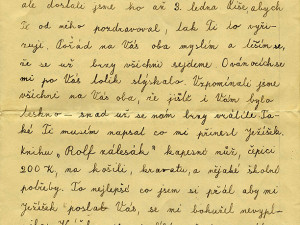 ale dostali jsme ho až 9. ledna. Píše, abych
Te od něho pozdravoval, tak Ti to vyři-
zuji. Pořád na Vás oba myslím a těším se,
že se už brzy všichni sejdeme. O vánocích se
mi po Vás tolik stýskalo. Vzpomínali jsme
všichni na Vás oba, že jistě i Vám bylo
teskno — snad už se nám brzy vrátíte. Ta-
ké Ti musím napsat co mi přinesl Ježíšek.
knihu „Rolf zálesák" kapesní nůž, čepici
200 K, na košili, kravatu, a nějaké školní
potřeby. To nejlepší co jsem si přál aby mi
Ježíšek poslal Vás, se mi bohužel nevypl-